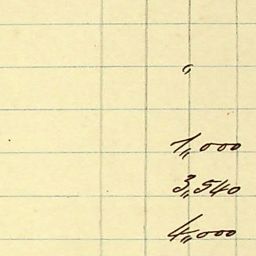 "
1,,000
3,,540
4,,000